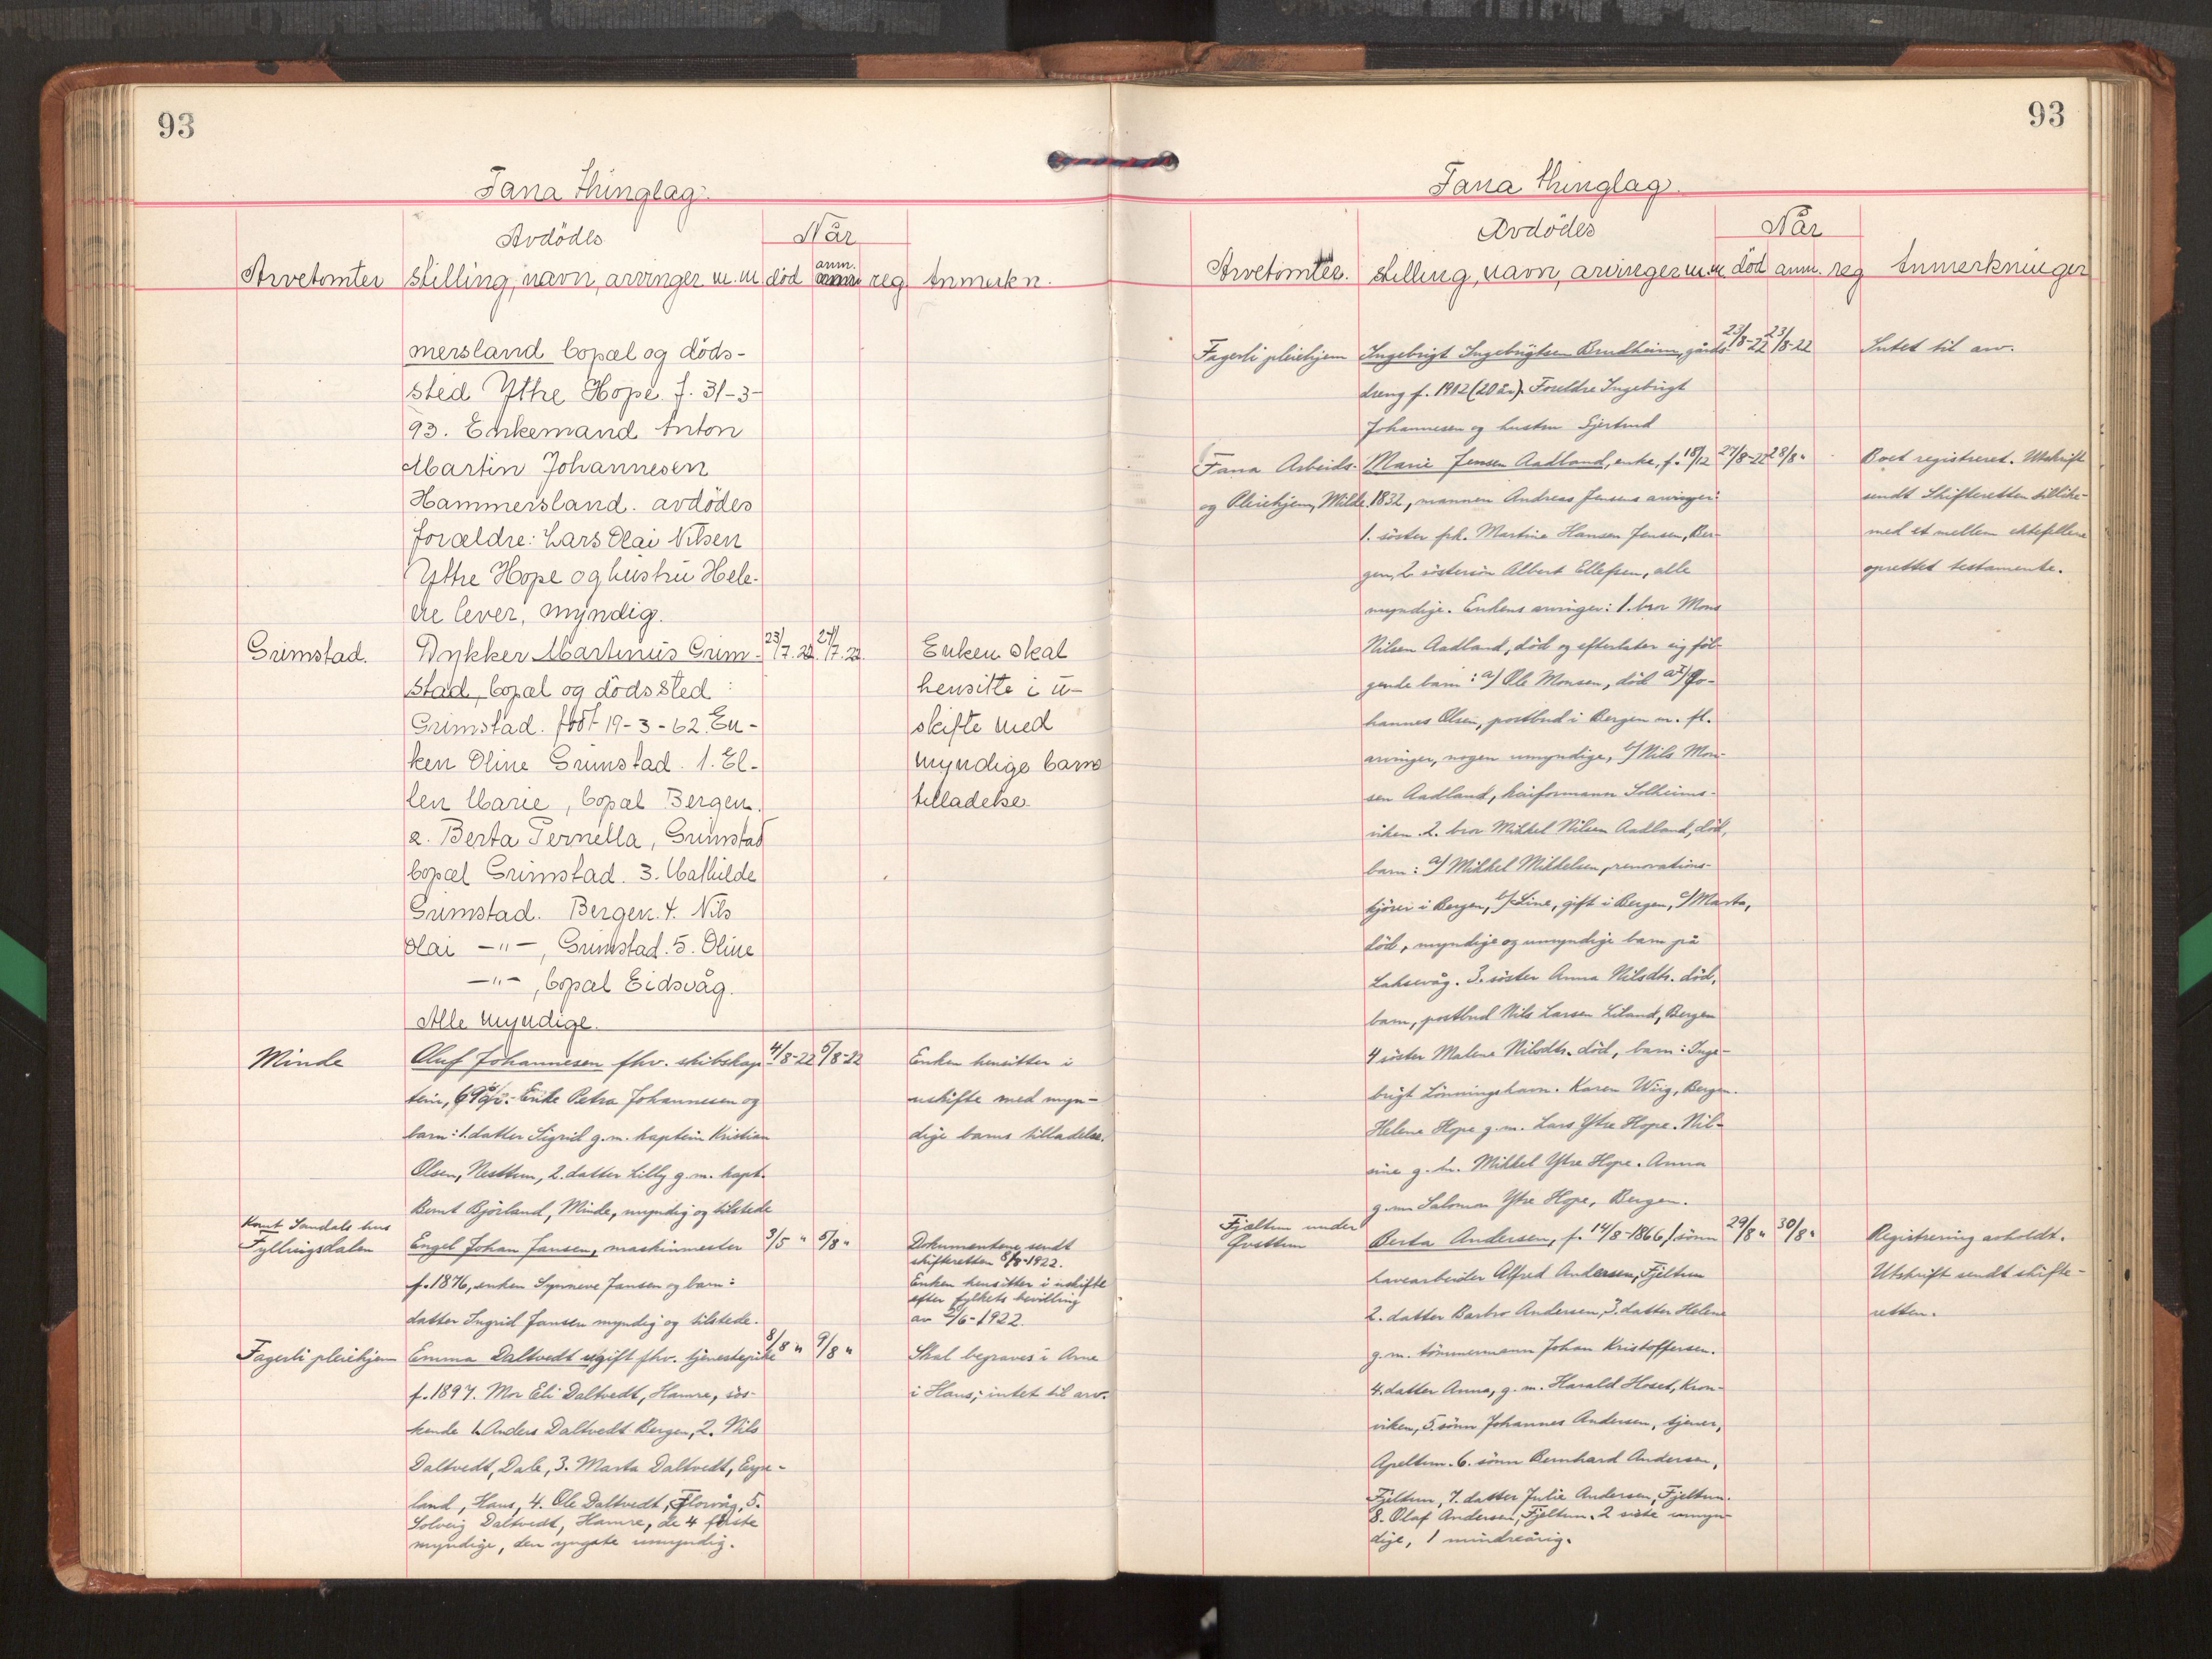 93
Fana Thinglag.
Avdödes
Når
Arvetomter stilling, navn, arvinger m.m död anm. reg Anmerkn.
mersland bopæl og döds-
sted Ytre Hope f. 31-3-
93. Enkemand Anton
Martin Johannesen
Hammersland. avdödes
forældre: Lars Olai Nilsen
Ytre Hope og hustru Hele-
ne lever, myndig.
Grimstad. Dykker Martinus Grim- 23/7.22. 24/7.22. Enken skal
stad, bopæl og dödssted: hensitte i u-
Grimstad. född 19-3-62. En- skifte med
ken Oline Grimstad. 1. El- myndige barns
len Marie, bopæl Bergen. tilladelse.
2. Berta Pernella, Grimstad
bopæl Grimstad. 3. Mathilde
Grimstad. Bergen. 4. Nils
Olai -"-, Grimstad. 5. Oline
-"-, bopæl Eidsvåg.
Alle myndige.
Minde Oluf Johannesen fhv. skibskap- 4/8-22 5/8-22 Enken hensitter i
tein, 69 år. Enke Petra Johannesen og uskifte med myn-
barn: 1. datter Sigrid g.m. kaptein Kristian dige barns tilladelse.
Olsen, Nesttun, 2. datter Lilly g.m. kapt.
Bernt Björland, Minde, myndig og tilstede
Knut Sandals hus
Fyllingsdalen Engel Johan Jansen, maskinmester 3/5 " 5/8 " Dokumentene sendt
skifteretten 8/8-1922.
f. 1876, enken Synneve Jansen og barn: Enken hensitter i uskifte
efter fylkets bevilling
datter Ingrid Jansen myndig og tilstede. av 2/6-1922.
Fagerli pleiehjem Emma Daltvedt ugift fhv. tjenestepike 8/8 " 9/8 " Skal begraves i Arne
f. 1897. Mor Eli Daltvedt, Hamre, sös- i Haus, intet til arv.
kende 1. Anders Daltvedt Bergen, 2. Nils
Daltvedt, Dale, 3. Marta Daltvedt,
land, Haus, 4. Ole Daltvedt, Florvåg, 5.
Solveig Daltvedt, Hamre, de 4 förste
myndige, den yngste umyndig.
93
Fana Thinglag.
Avdödes
Når
Arvetomter. stilling, navn, arvinger m.m. död anm. reg Anmerkninger
Fagerli pleiehjem Ingebrigt Ingebrigtsen Brudheim, gårds- 23/8-22 23/8-22 Intet til arv.
dreng f. 1902 (20 år). Foreldre Ingebrigt
Johannesen og hustru Gjertrud
Fana Arbeids- Marie Jensen Aadland, enke, f. 18/12 27/8-22 28/8 " Boet registreret. Utskrift
og Pleiehjem, Milde. 1832, mannen Andreas Jensens arvinger: sendt Skifteretten tillike-
1. söster frk. Martine Hansen Jensen, Ber- med et mellem ektefellene
gen, 2. söstersön Albert Ellefsen, alle oprettet testamente.
myndige. Enkens arvinger: 1. bror Mons
Nilsen Aadland, död og efterlater sig föl-
gende barn: a) Ole Monsen, död a1) Jo-
hannes Olsen, postbud i Bergen m. fl.
arvinger, nogen umyndige, b) Nils Mon-
sen Aadland, kaiformann Solheims-
viken. 2. bror Mikkel Nilsen Aadland, död,
barn: a) Mikkel Mikkelsen, renovations-
kjörer i Bergen, b) Line, gift i Bergen, c) Marta,
död, myndige og umyndige barn på
Laksevåg. 3. söster Anna Nilsdtr. död,
barn, postbud Nils Larsen Liland, Bergen
4 söster Malene Nilsdtr. död, barn: Inge-
brigt Lönningshavn. Karen Wiig, Bergen.
Helene Hope g.m. Lars Ytre Hope. Nil-
sine g.m. Mikkel Ytre Hope. Anna
g.m. Salomon Ytre Hope, Bergen.
Fjeltun under
Övsttun Berta Andersen, f. 14/8-1866, 1 sönn 29/8 " 30/8 " Registrering avholdt.
havearbeider Alfred Andersen, Fjeltun Utskrift sendt skifte-
2. datter Barbro Andersen, 3. datter Helene retten.
g.m. tömmermann Johan Kristoffersen.
4. datter Anna, g.m. Harald Hoset, Kron-
viken, 5. sönn Johannes Andersen, tjener,
Apeltun. 6. sönn Bernhard Andersen,
Fjeltun, 7. datter Julie Andersen, Fjeltun.
8. Olaf Andersen, Fjeltun. 2 siste umyn-
dige, 1 mindreårig.